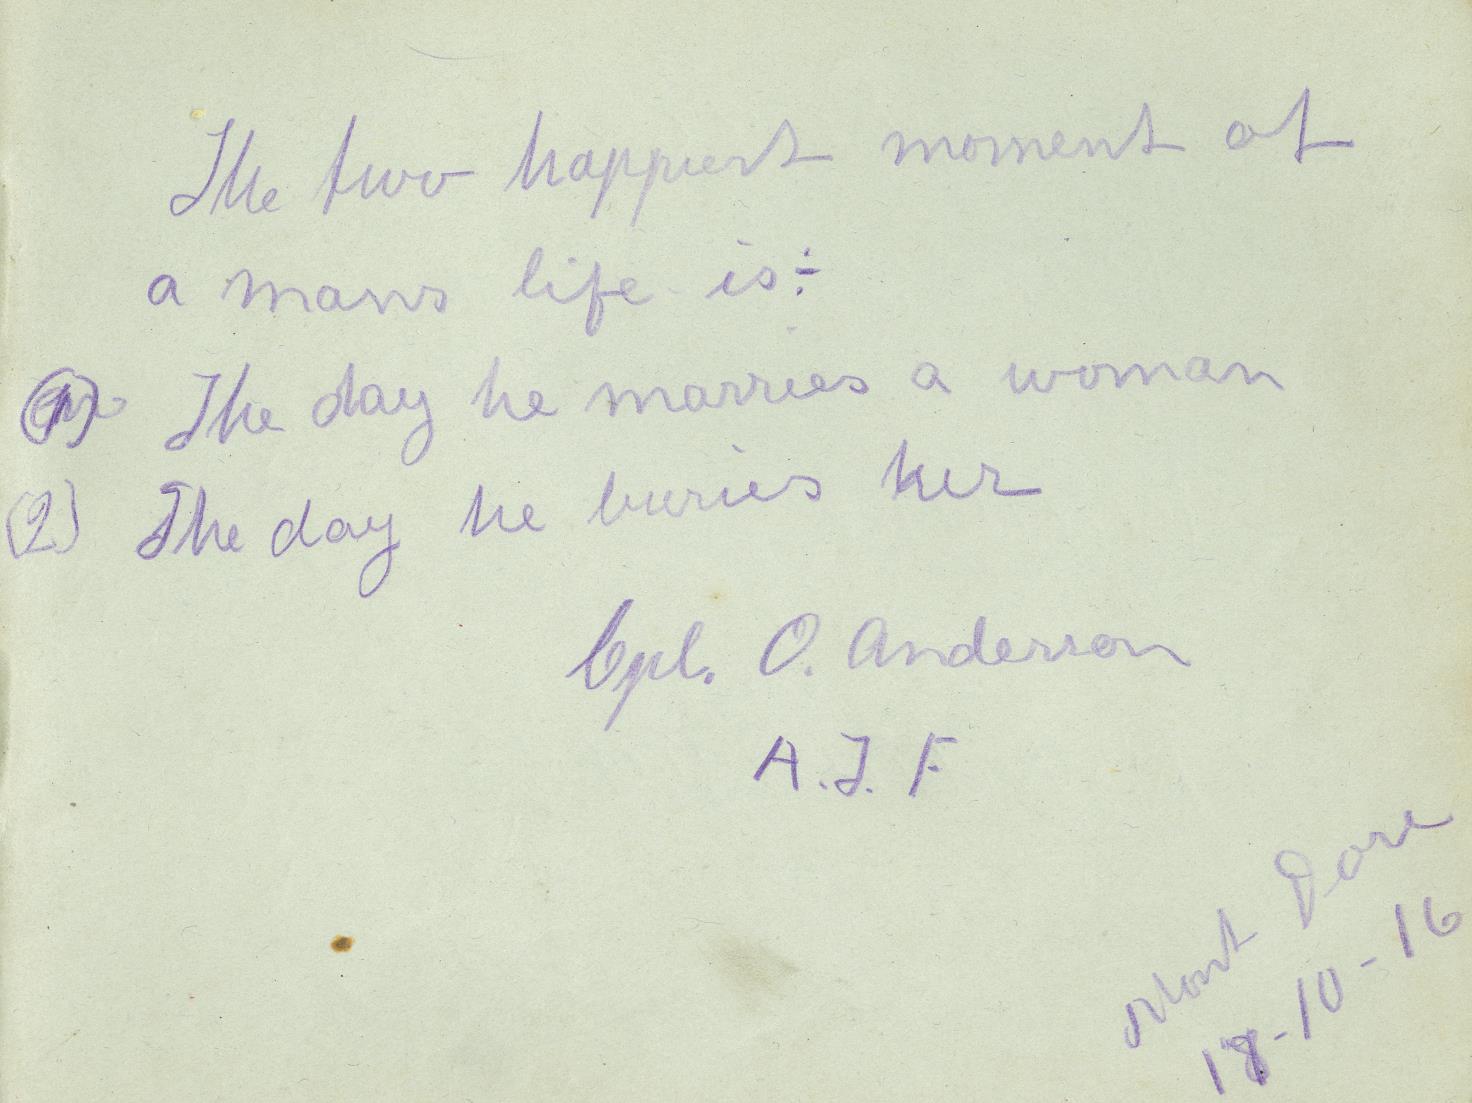 The two happiest moment of
a mans life is:
(1) The day he marries a woman
(2) The day he buries her
Cpl. O. Anderson
A.I.F
Mont Dore
18-10-16